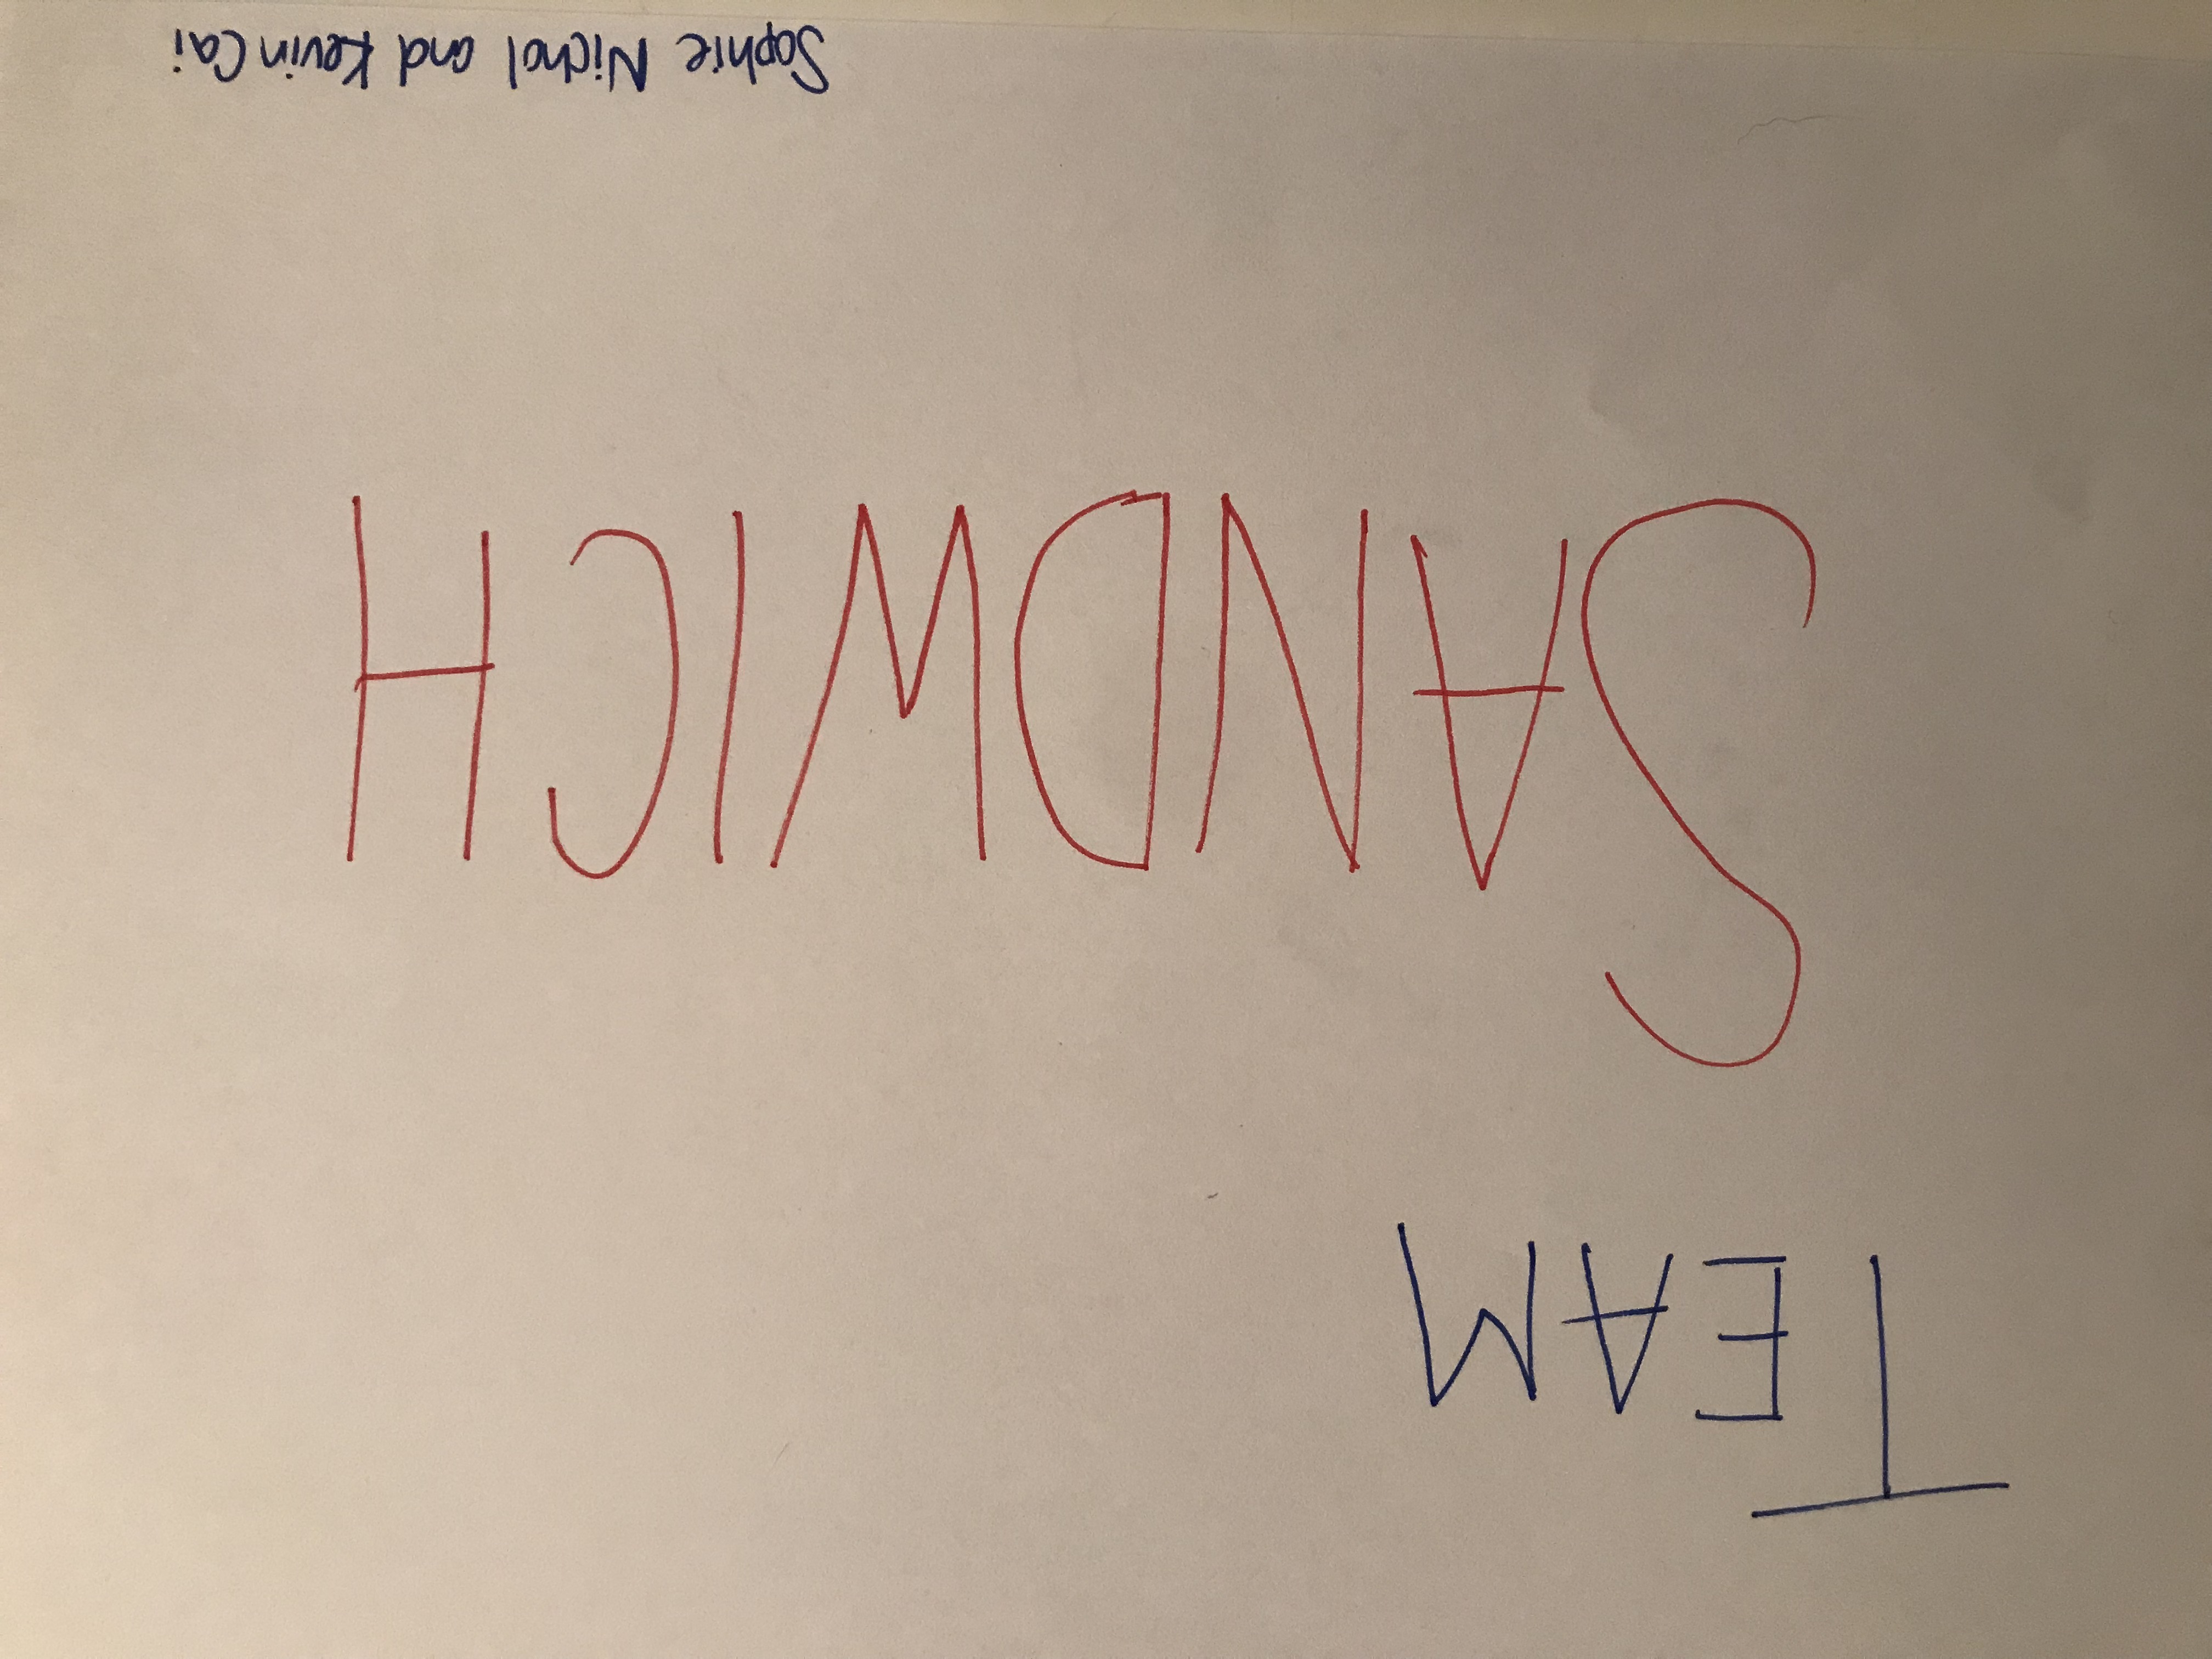 TEAM
SANDWICH
Sophie Nichol and Kevin Cai